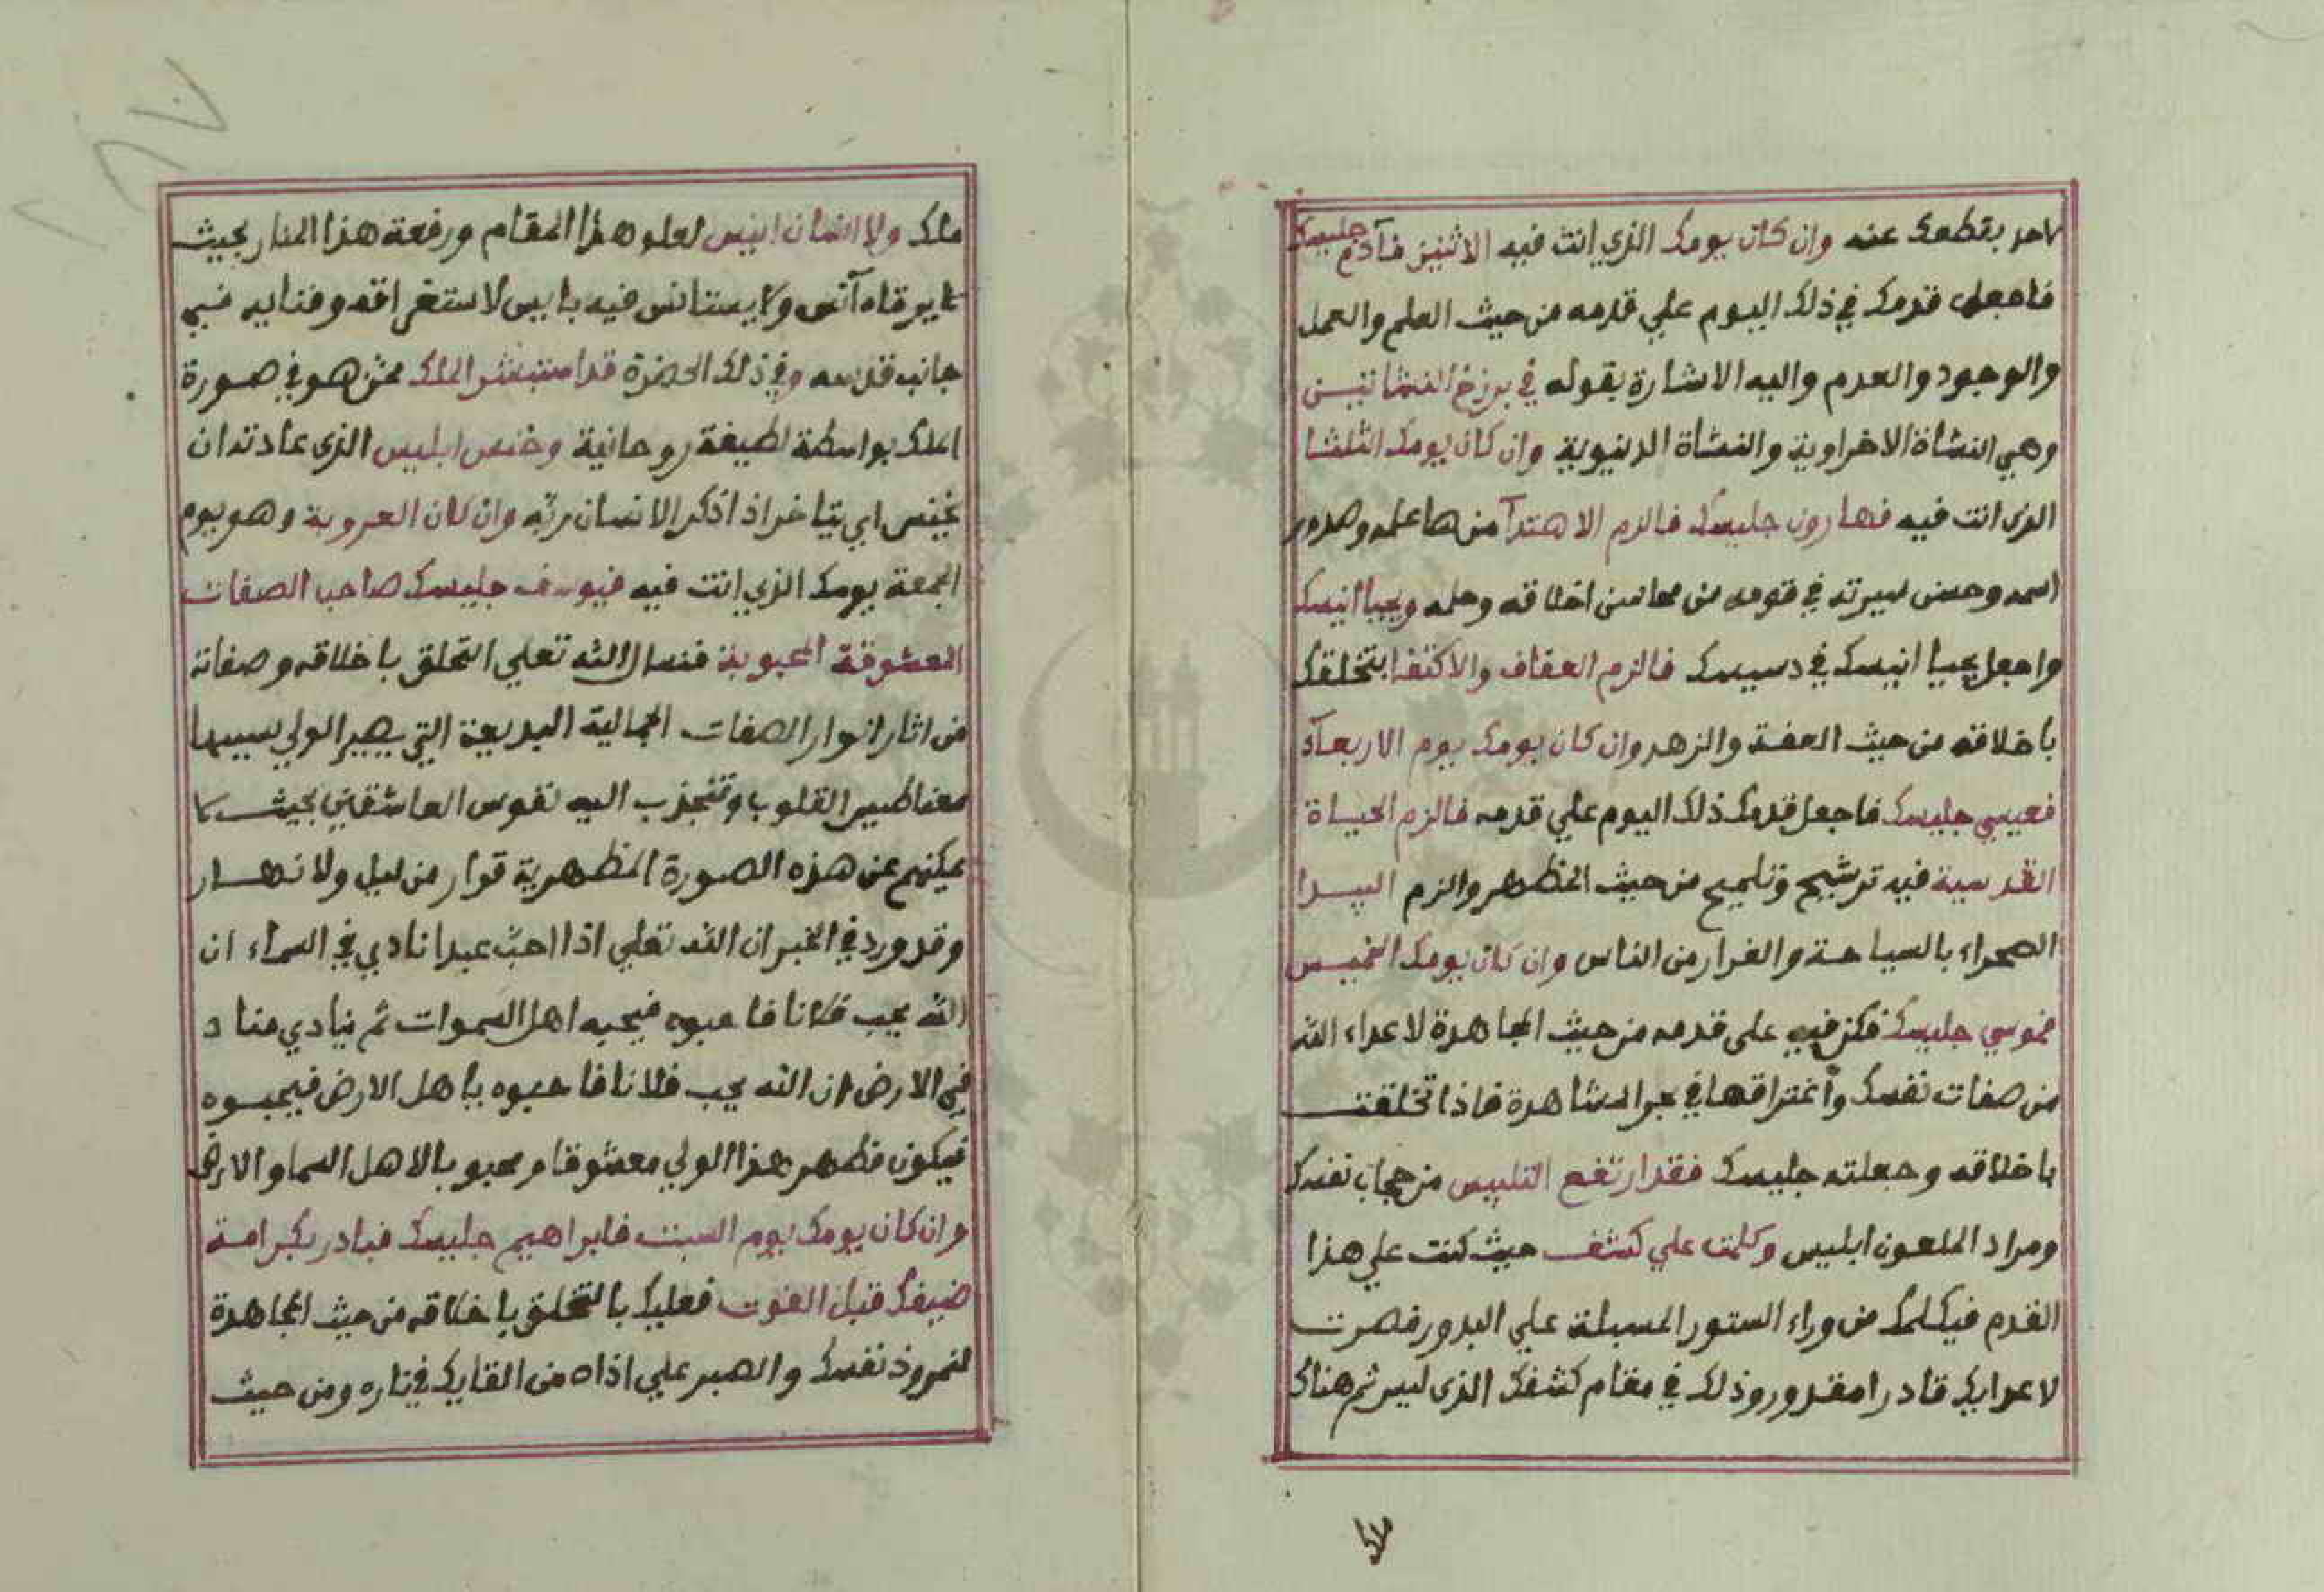 لاحد يقطعك عنه وان كان يومك الذي انت فيه الاثنين فآدم جليسك
فاجعل قدمك في ذلك اليوم علي قدمه من حيث العلم والعمل
والوجود والعدم واليه الاشارة بقوله في برزخ النشاتين
وهي النشاة الاخراوية والنشاة الدنيوية وان كان يومك الثلثا
الذى انت فيه فهارون جليسك فالزم الاهتدآ من
اسمه وحسن سيرته في قومه من محاسن اخلاقه وحلمه ويحيا انيسك
واجعل يحيا انيسك في دسيسك فالزم العفاف والاكتفا بتخلقك
باخلاقه من حيث العفة والزهد وان كان يومك يوم الاربعآء
فعيسي جليسك فاجعل قدمك ذلك اليوم علي قدمه فالزم الحياة
القدسية فيه ترشيح وتلميح من حيث المظهر والزم البيدا
الصحراء بالسياحة والفرار من الناس وان كان يومك الخميس
فموسي جليسك فكن فيه على قدمه من حيث المجاهدة لاعداء الله
من صفات نفسك واغتراقها في بحر المشاهدة فاذا تخلقت
باخلاقه وجعلته جليسك فقد ارتفع التلبيس من حجاب نفسك
ومراد الملعون ابليس وكلمت علي كشف حيث كنت علي هذا
القدم فيكلمك من وراء الستور المسبلة علي البدور فصرت
لاعدايك قادرا مقدور وذلك في مقام كشفك الذى ليس ثم هناك
ملك
ملك ولا انيس لعلو هذا المقام ورفعة هذا المنار بحيث
لا يرقاه آنس ولا يستانس فيه بانيس لاستغراقه وفنايه في
جانب قدسه وفي ذلك الحضرة قد استبشر الملك ممن هو في صورة
الملك بواسطة لطيفة روحانية وخنس ابليس الذى عادته ان
يخنس اي يتاخر اذا ذكر الانسان ربّه وان كان العروبة وهو يوم
الجمعة يومك الذي انت فيه فيوسف جليسك صاحب الصفات
المعشوقة المحبوبة فنسال الله تعلي التخلق باخلاقه وصفاته
من اثار انوار الصفات الجمالية البديعة التي يصير الولي بسببها
مغناطيس القلوب وتنجذب اليه نفوس العاشقين بحيث لا
يمكنهم عن هذه الصورة المظهرية قرار من ليل ولا نهار
وقد ورد في الخبر ان الله تعلي اذا احبّ عبدا نادي في السماء ان
الله يحب فلانا فاحبوه فيحبه اهل السموات ثم ينادي مناد
في الارض ان الله يحب فلانا فاحبوه ياهل الارض فيحبوه
فيكون مظهر هذا الولي معشوقا ومحبوبا لاهل السما والارض
وان كان يومك يوم السبت فابراهيم جليسك فبادر بكرامة
ضيفك قبل الفوت فعليك بالتخلق باخلاقه من حيث المجاهدة
لنمروذ نفسك والصبر علي اذاه من القايك في ناره ومن حيث